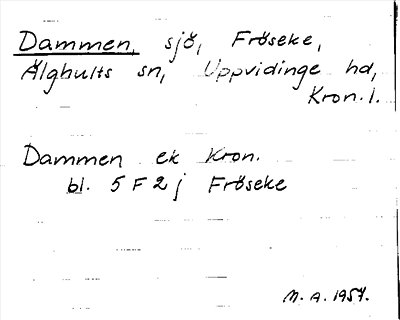 Dammen, sjö, Fröseke,
Älghults sn, Uppvidinge hd,
Kron. l.
Dammen ek Kron.
bl. 5 F 2 j Fröseke
M. A. 1957.